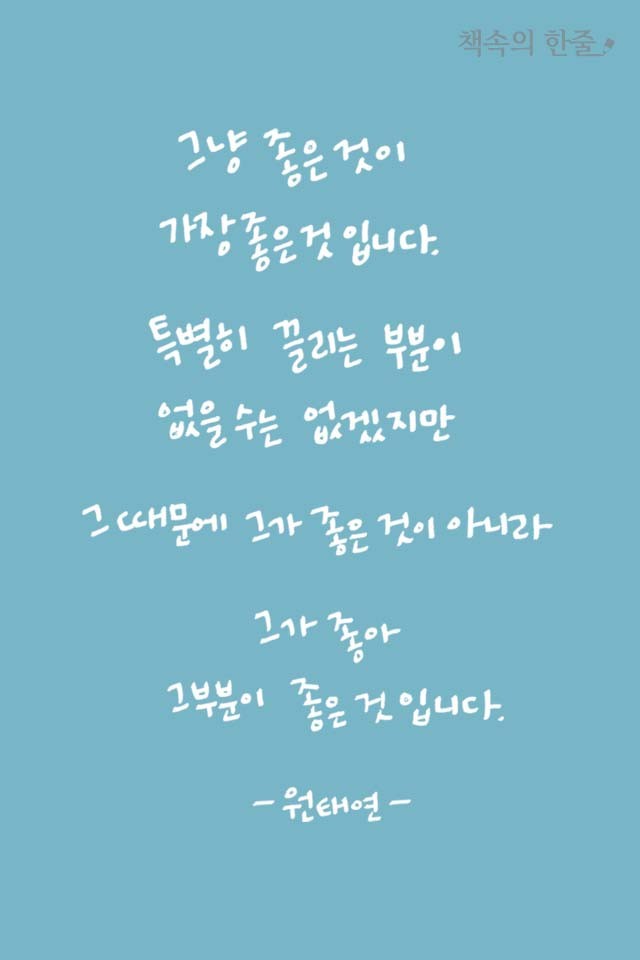 책속의 한줄
그냥 좋은 것이
가장 좋은 것 입니다.
특별히 끌리는 부분이
없을 수는 없겠지만
그 때문에 그가 좋은 것이 아니라
그가 좋아
그 부분이 좋은 것 입니다.
- 원태연 -